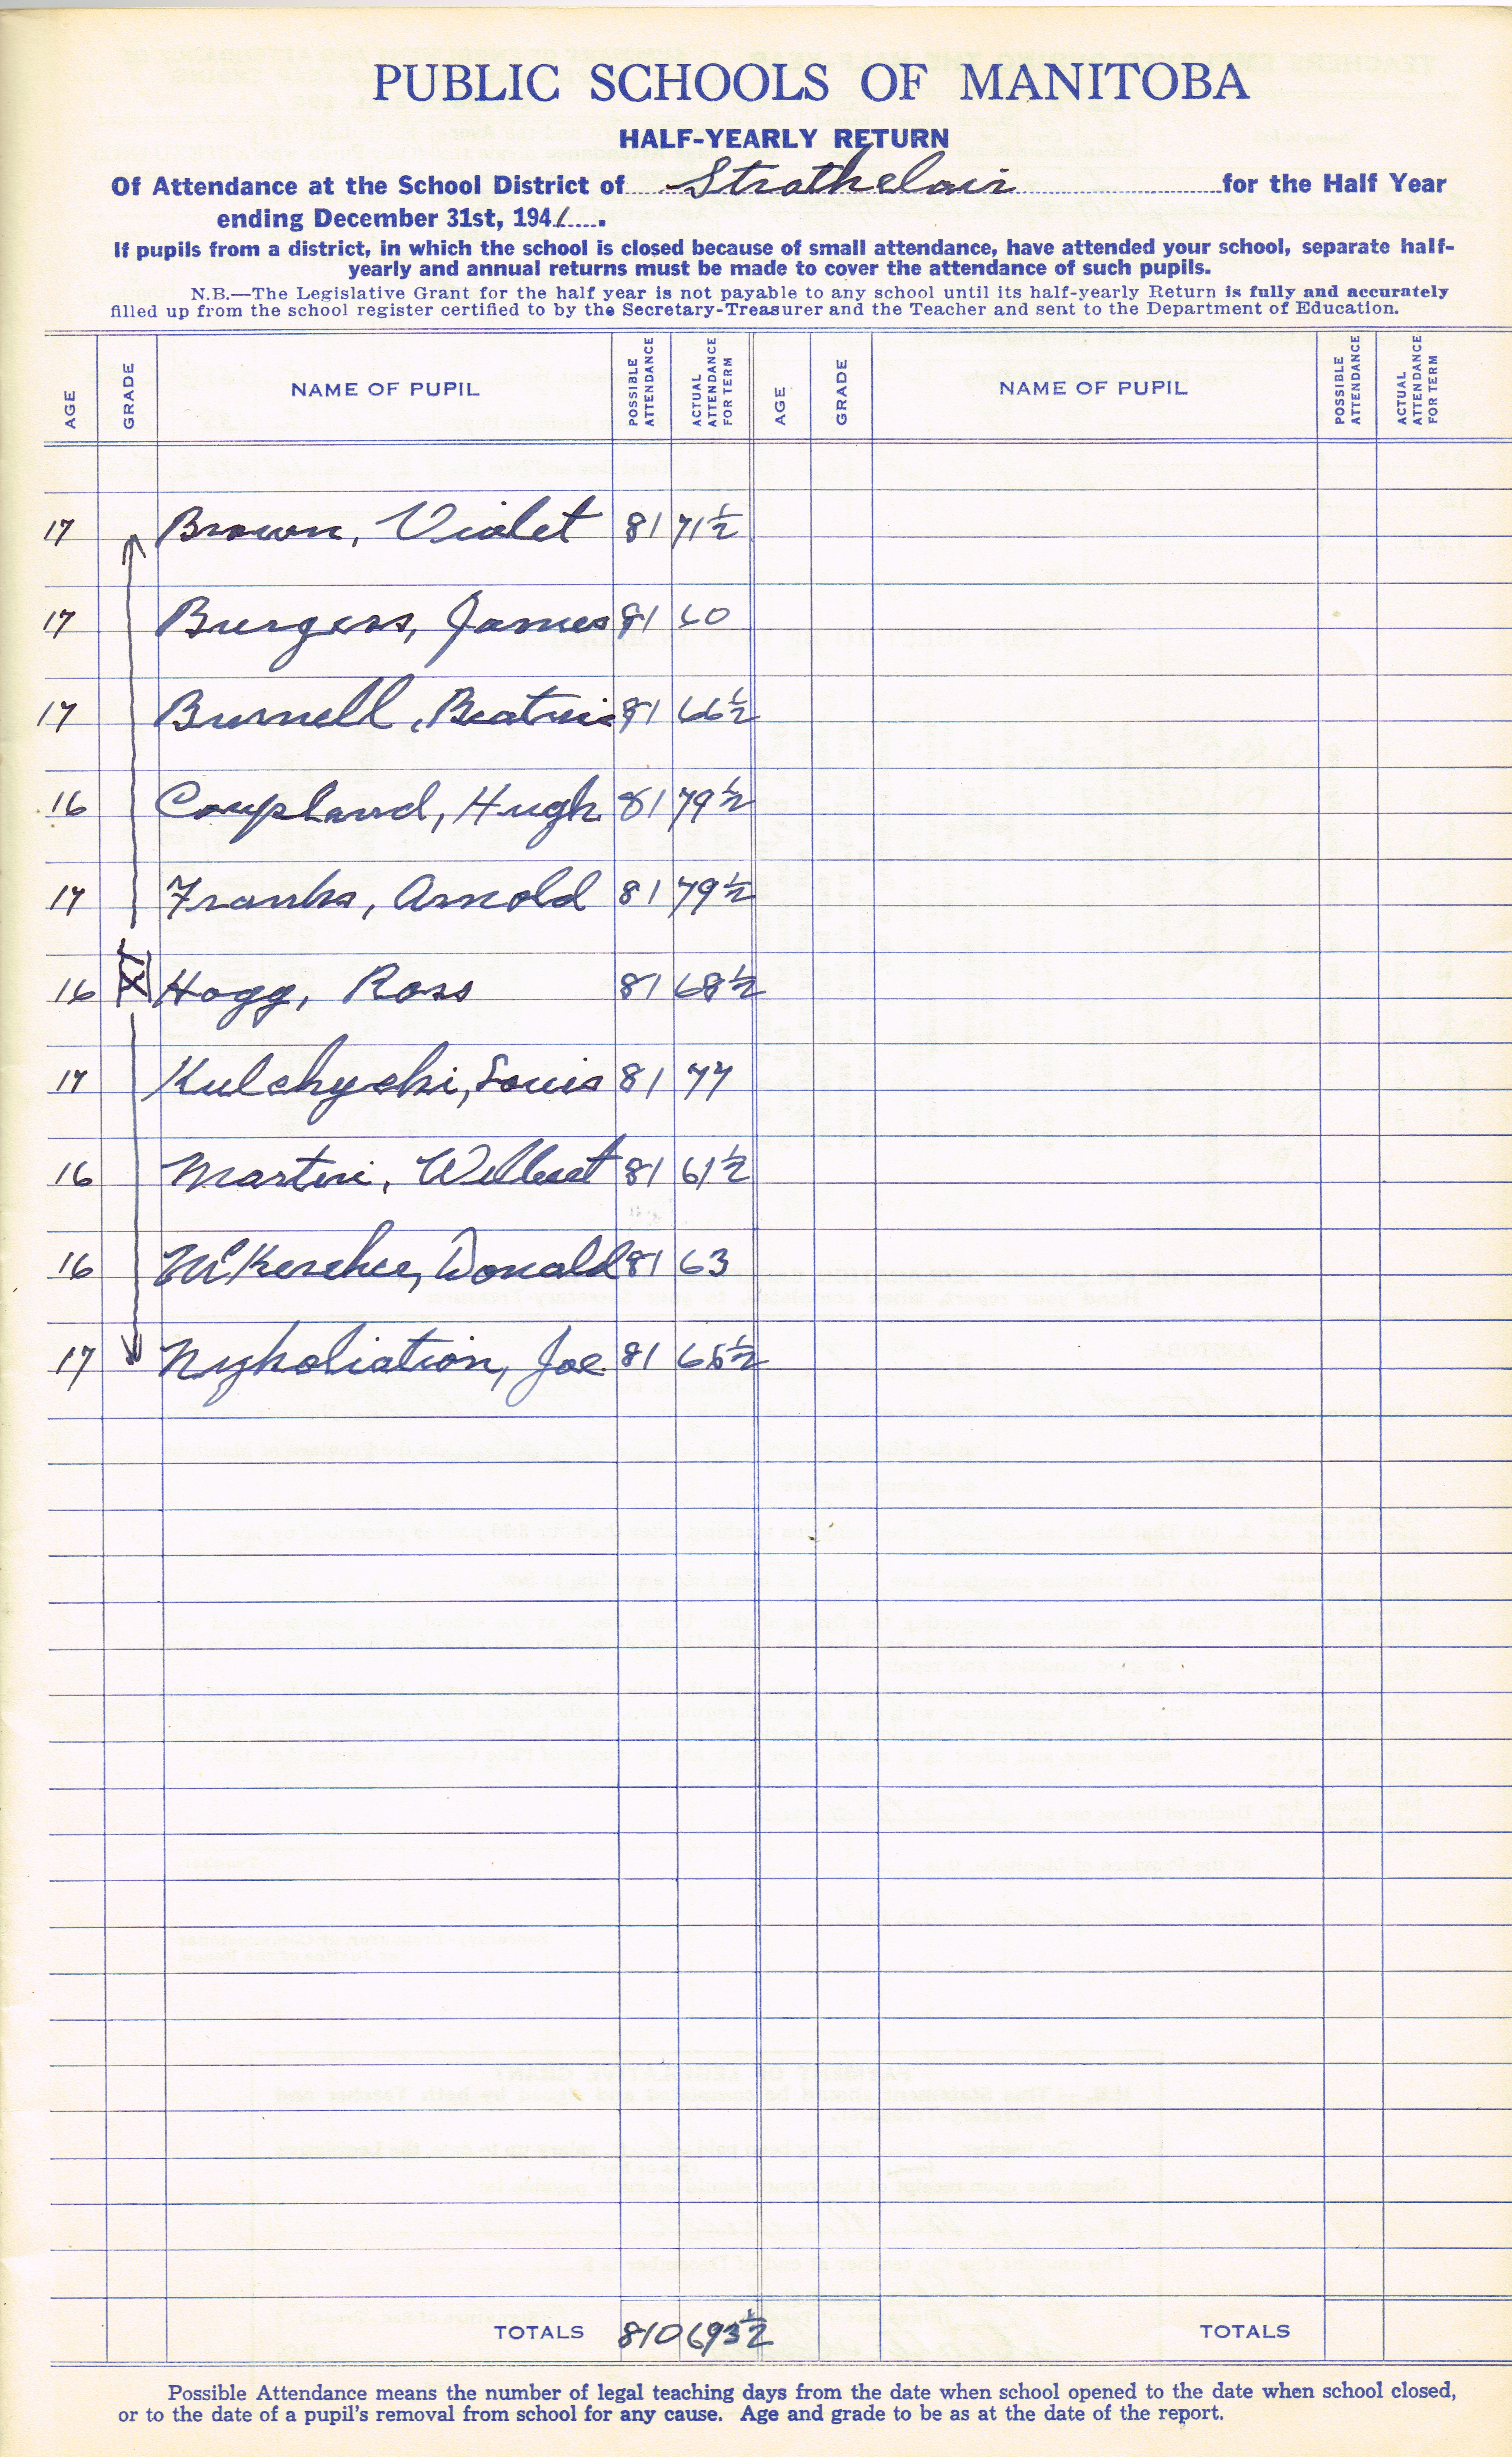 PUBLIC SCHOOLS OF MANITOBA
HALF-YEARLY RETURN
Of Attendance at the School District of Strathclair for the Half Year
ending December 31st, 1941.
If pupils from a district, in which the school is closed because of small attendance, have attended your school, separate half-
yearly and annual returns must be made to cover the attendance of such pupils.
N.B.—The Legislative Grant for the half year is not payable to any school until its half-yearly Return is fully and accurately
filled up from the school register certified to by the Secretary-Treasurer and the Teacher and sent to the Department of Education.
AGE GRADE NAME OF PUPIL POSSIBLE ATTENDANCE ACTUAL ATTENDANCE FOR TERM AGE GRADE NAME OF PUPIL POSSIBLE ATTENDANCE ACTUAL ATTENDANCE FOR TERM
17 Brown, Violet 81 71½
17 Burgess, James 81 60
17 Burnell, Beatrice 81 66½
16 Coupland, Hugh 81 79½
17 Franks, Arnold 81 79½
16 XI Hogg, Ross 81 68½
17 Kulchycki, Louis 81 77
16 Martin, Wilbert 81 61½
16 McKercher, Donald 81 63
17 Nykoliation, Joe 81 66½
TOTALS 810 693½ TOTALS
Possible Attendance means the number of legal teaching days from the date when school opened to the date when school closed,
or to the date of a pupil's removal from school for any cause. Age and grade to be as at the date of the report.